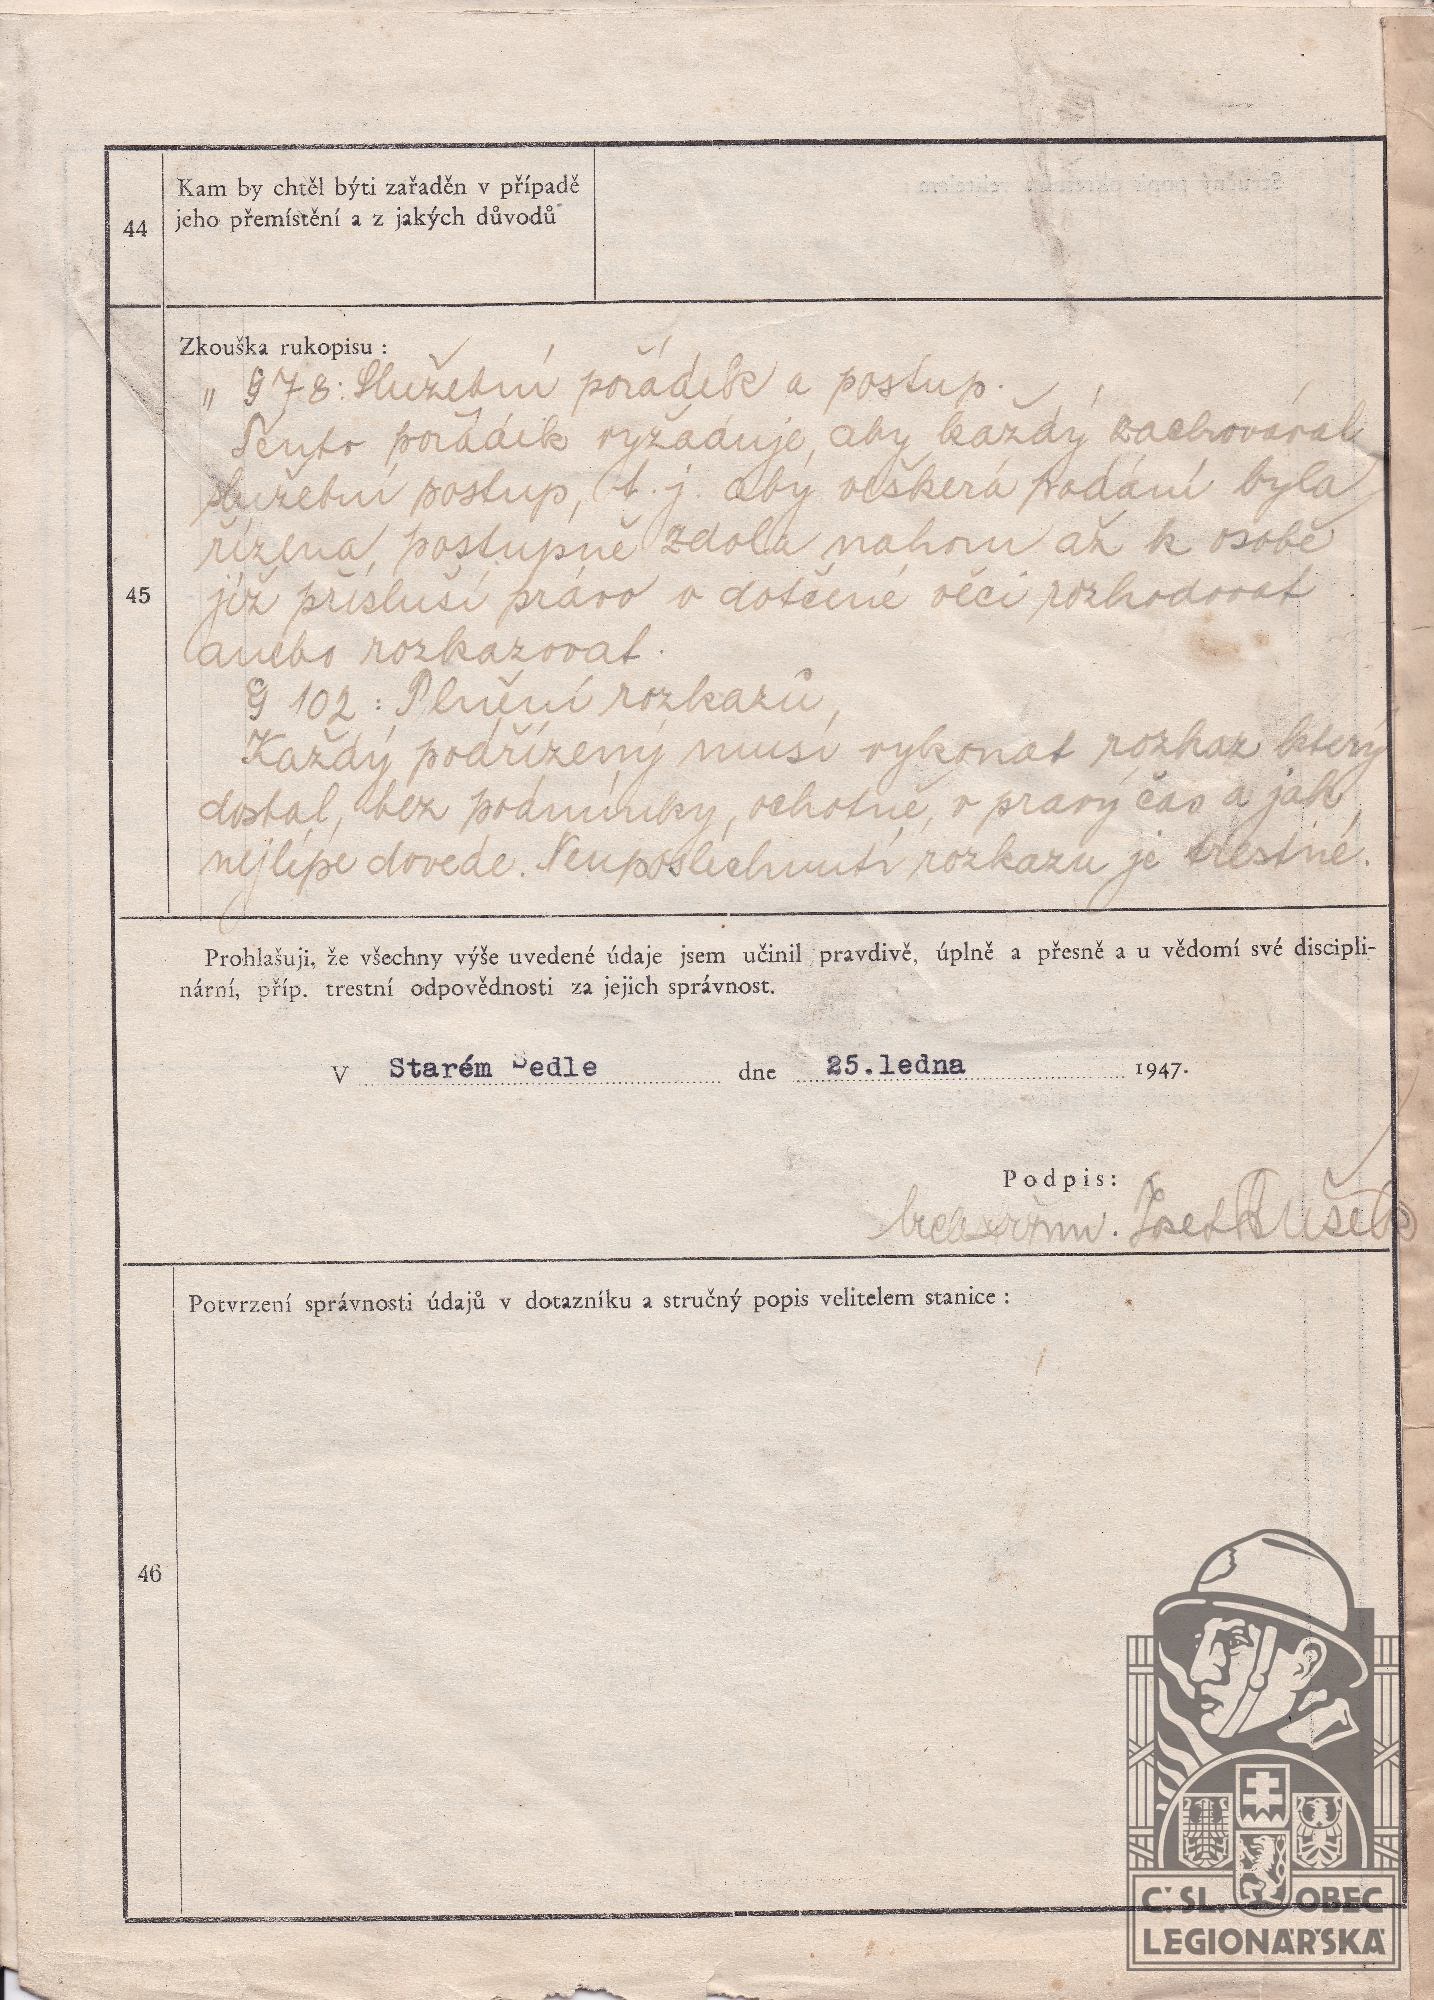 44
Kam by chtěl býti zařaděn v případě
jeho přemístění a z jakých důvodů
45
Zkouška rukopisu :
„ § 78: Služební pořádek a postup.
Tento pořádek vyžaduje, aby každý zachovával
služební postup, t. j. aby veškerá podání byla
řízena, postupně zdola nahoru až k osobě
jíž přísluší právo v dotčené věci rozhodovat
anebo rozkazovat.
§ 102 : Plnění rozkazů,
Každý podřízený musí vykonat rozkaz který
dostal, bez podmínky, ochotně, v pravý čas a jak
nejlépe dovede. Neuposlechnutí rozkazu je trestné.
Prohlašuji, že všechny výše uvedené údaje jsem učinil pravdivě, úplně a přesně a u vědomí své discipli-
nární, příp. trestní odpovědnosti za jejich správnost.
V Starém Sedle dne 25.ledna 1947.
Podpis:
Josef Hušek
46
Potvrzení správnosti údajů v dotazníku a stručný popis velitelem stanice :
Č. SL. OBEC
LEGIONÁŘSKÁ